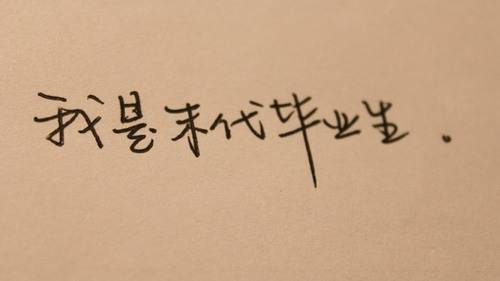 我是末代毕业生.